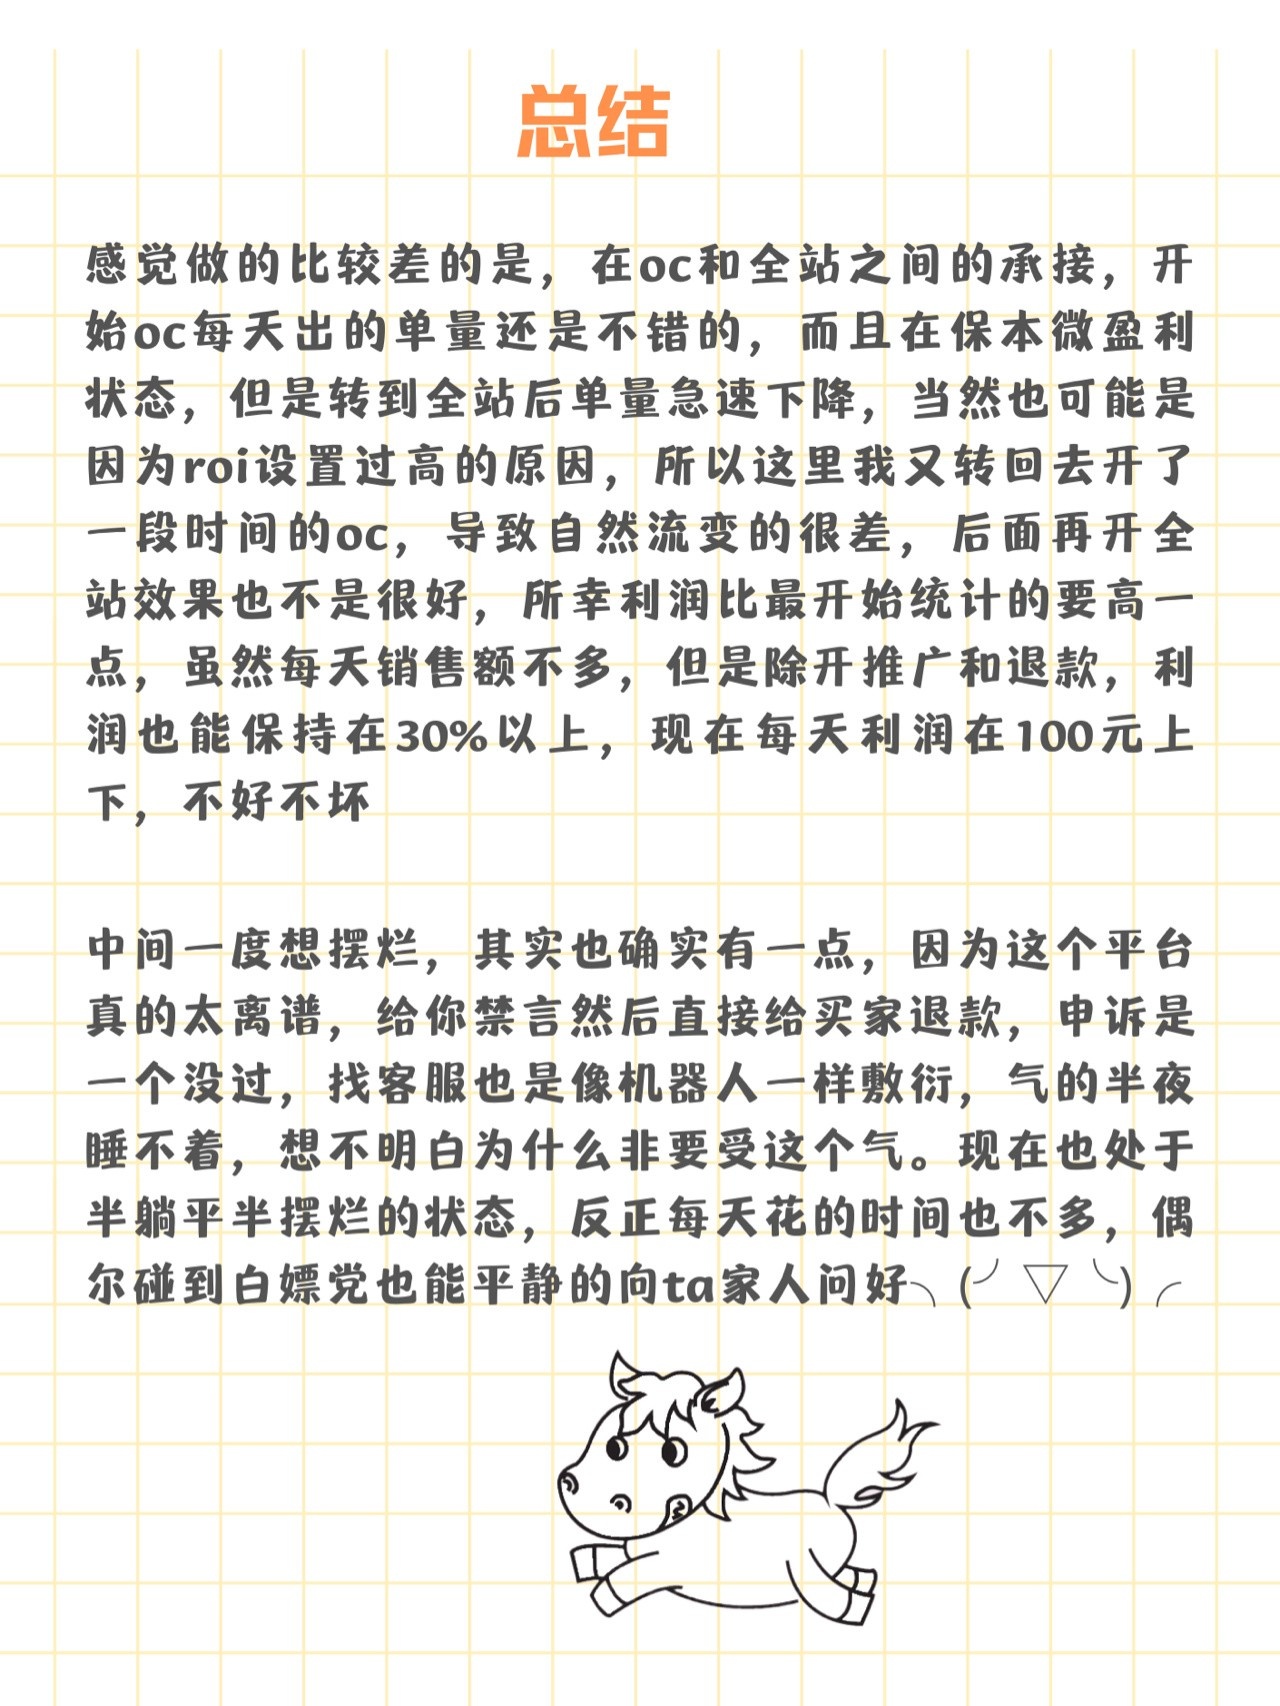 总结
感觉做的比较差的是，在oc和全站之间的承接，开
始oc每天出的单量还是不错的，而且在保本微盈利
状态，但是转到全站后单量急速下降，当然也可能是
因为roi设置过高的原因，所以这里我又转回去开了
一段时间的oc，导致自然流变的很差，后面再开全
站效果也不是很好，所幸利润比最开始统计的要高一
点，虽然每天销售额不多，但是除开推广和退款，利
润也能保持在30%以上，现在每天利润在100元上
下，不好不坏
中间一度想摆烂，其实也确实有一点，因为这个平台
真的太离谱，给你禁言然后直接给买家退款，申诉是
一个没过，找客服也是像机器人一样敷衍，气的半夜
睡不着，想不明白为什么非要受这个气。现在也处于
半躺平半摆烂的状态，反正每天花的时间也不多，偶
尔碰到白嫖党也能平静的向ta家人问好╮(╯▽╰)╭